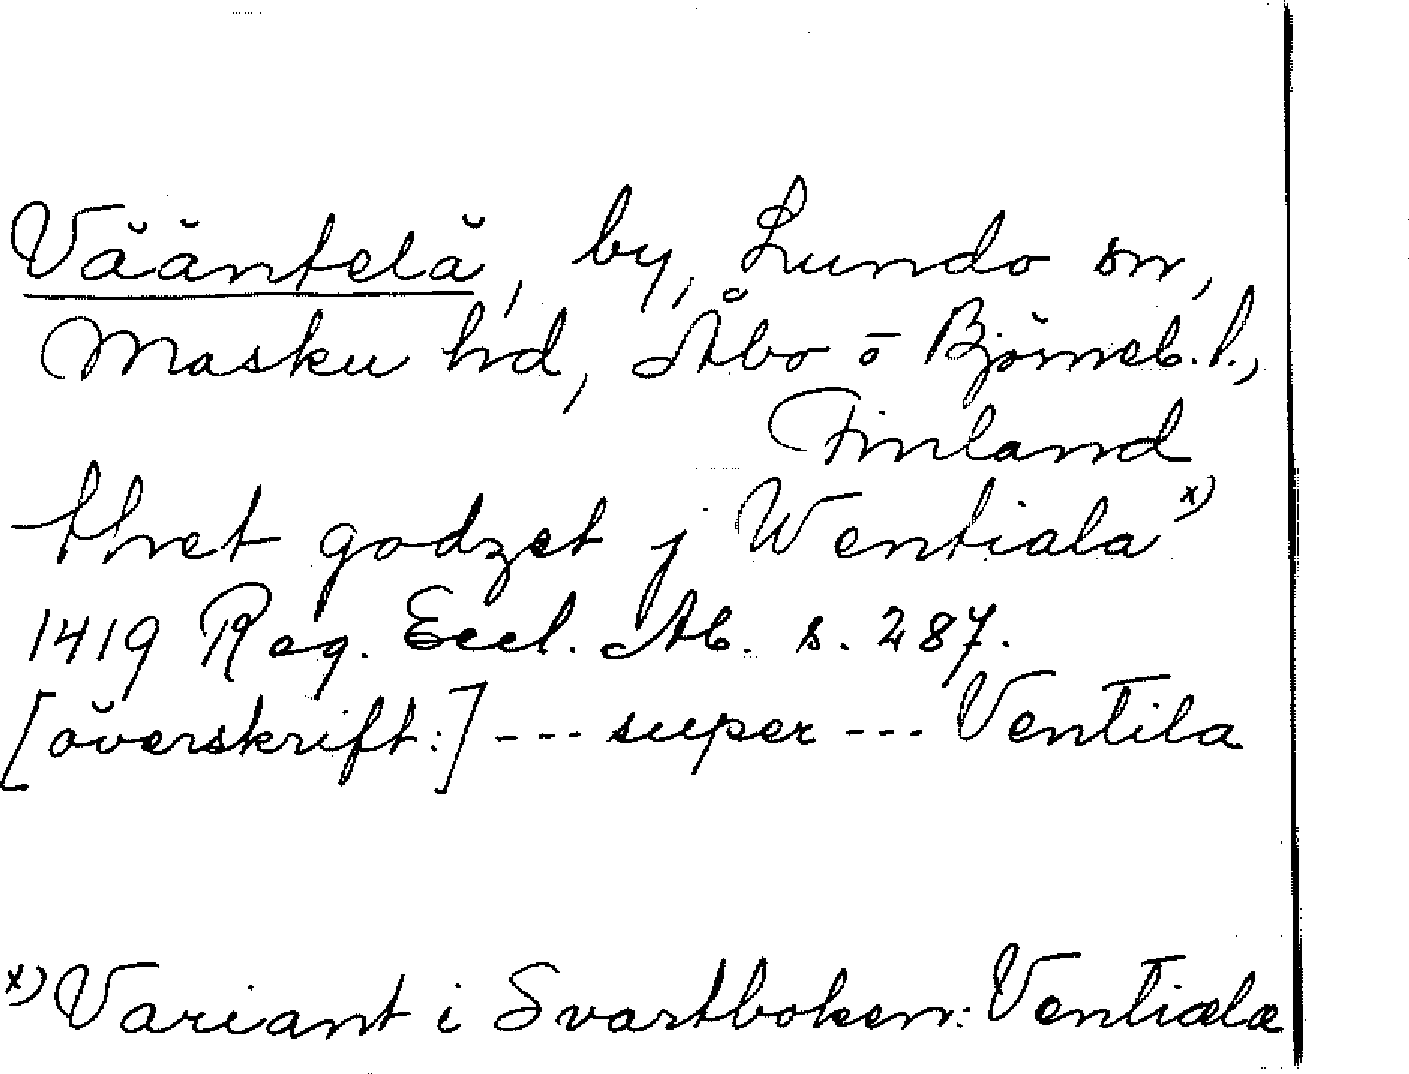 Vääntelä, by, Lundo sn,
Masku hd, Åbo o Björneb. l.,
Finland
thet godzet j Wentiala x)
1419 Reg. Eccl. Ab. s. 287.
[överskrift:] --- super --- Ventila
x) Variant i Svartboken: Ventiælæ